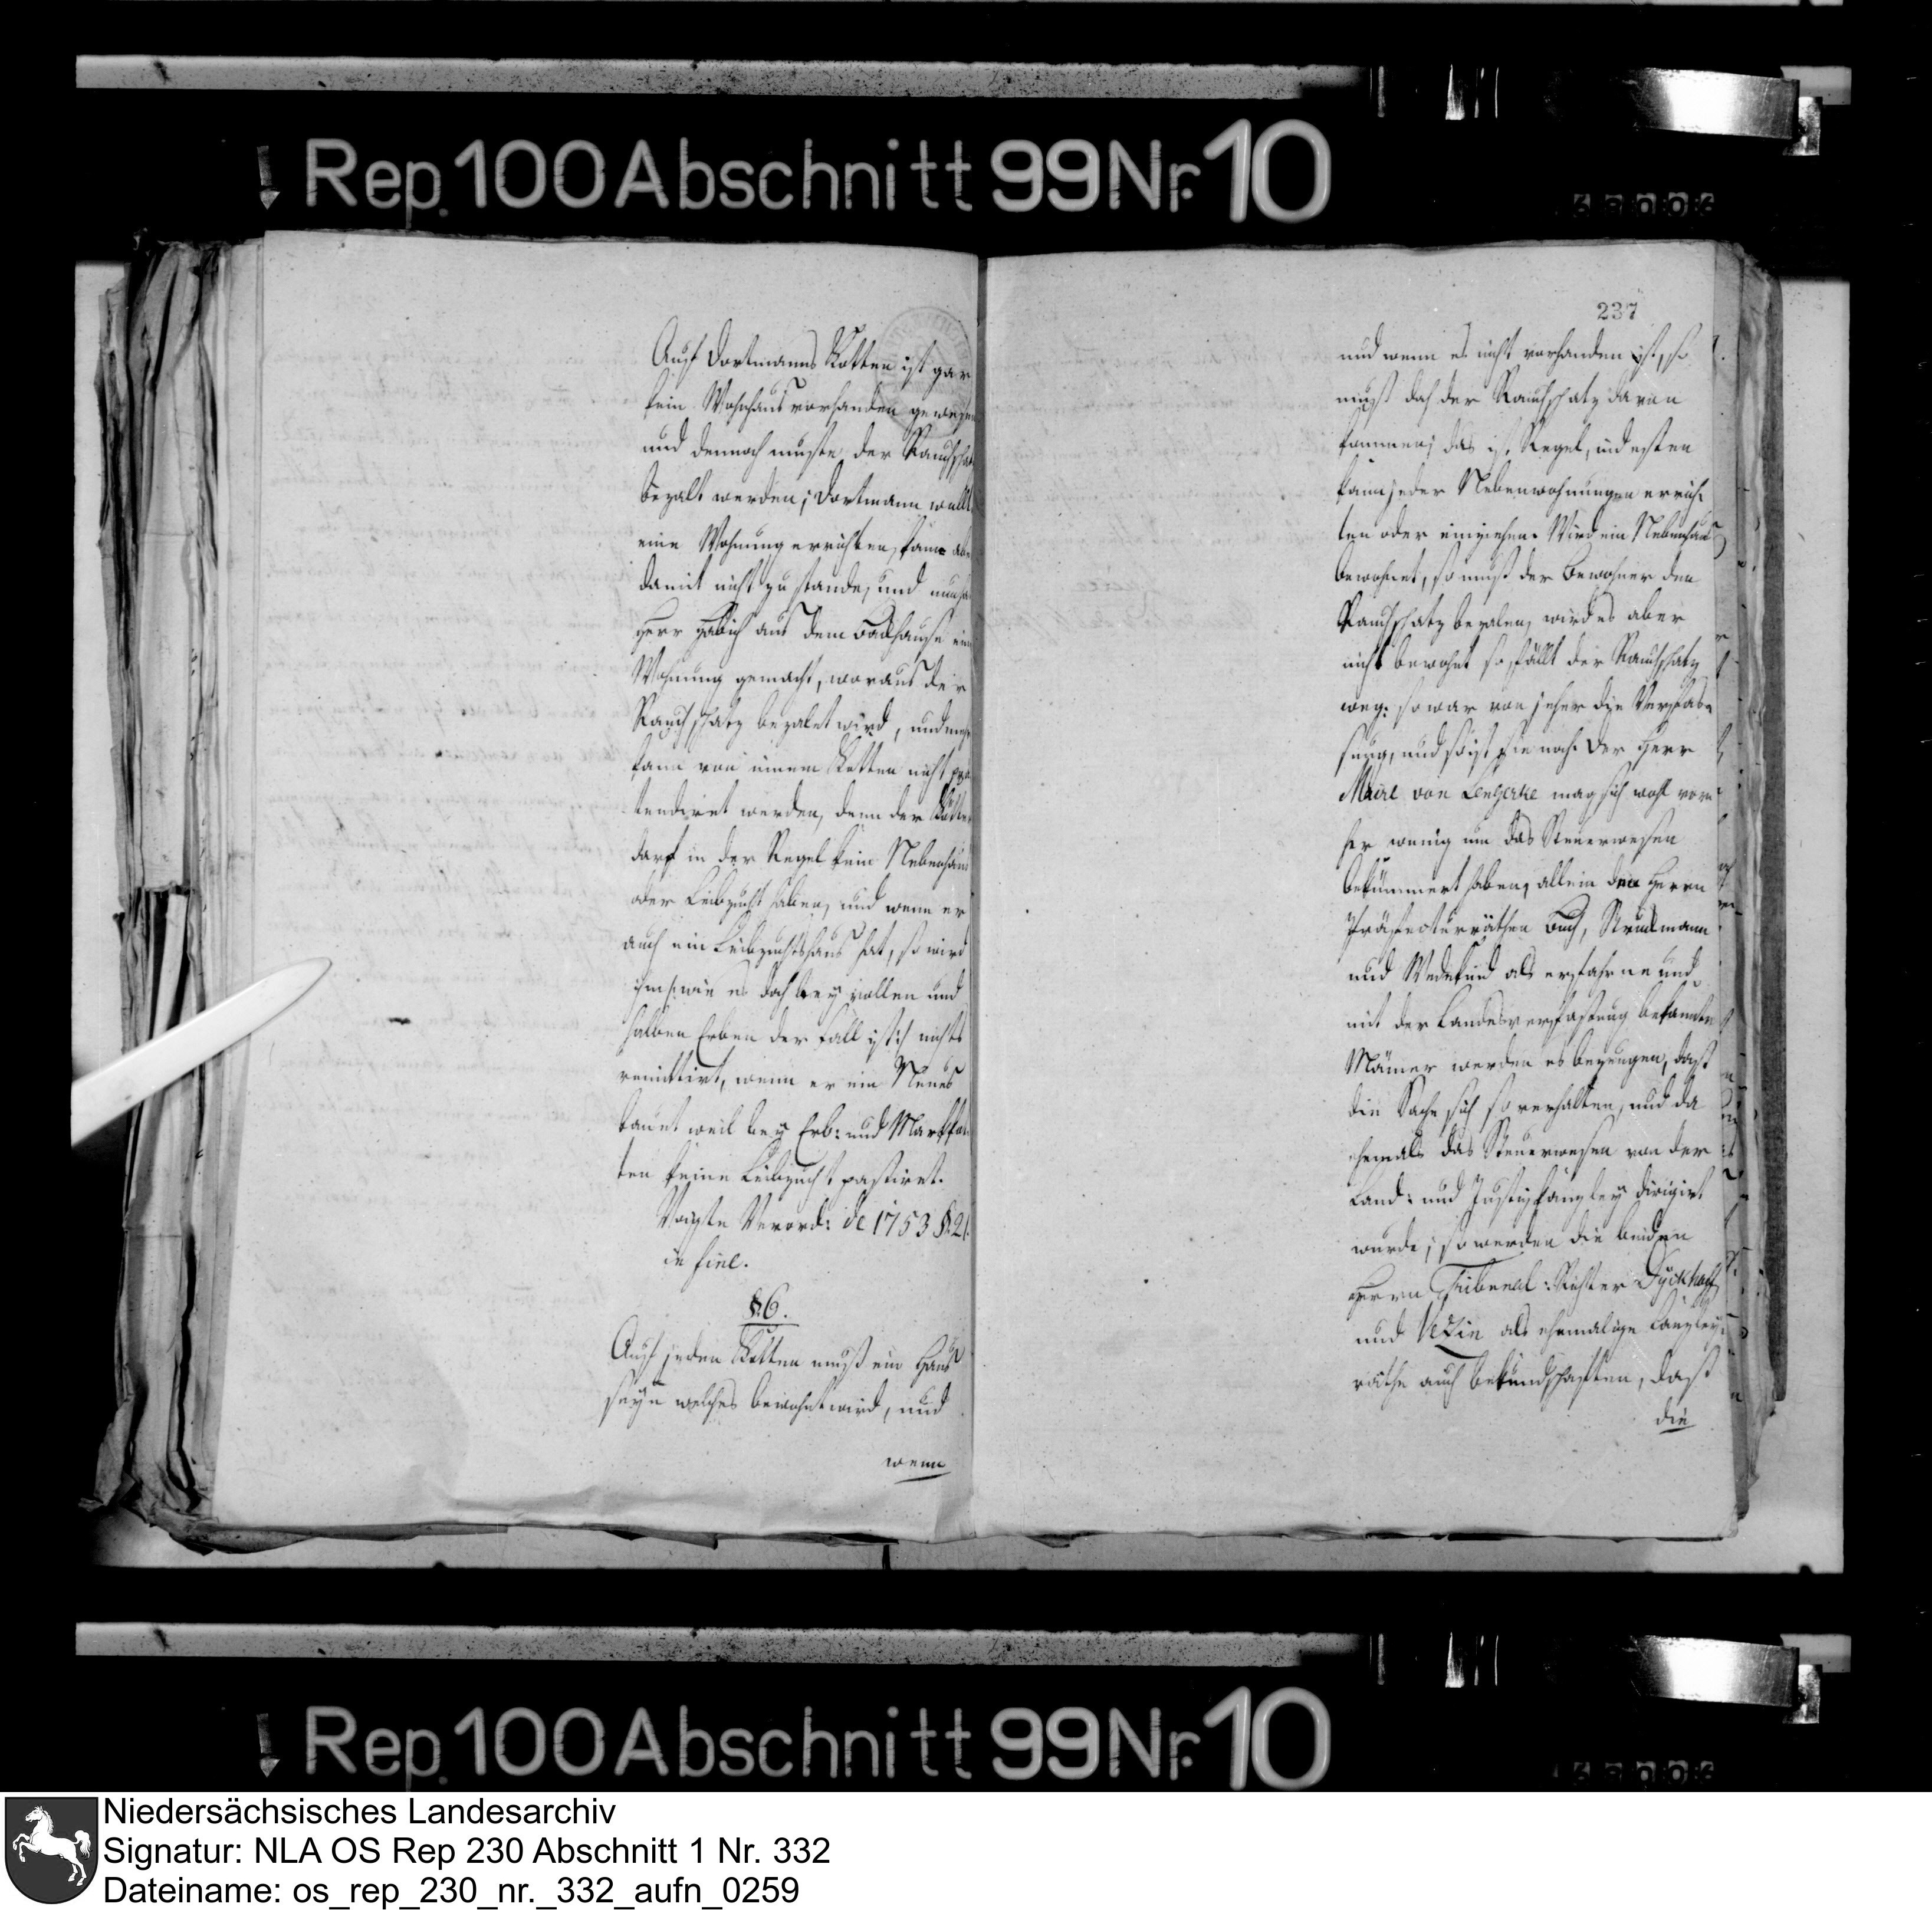 Rep. 100 Abschnitt 99 Nr. 10
Auf Dortmanns Kotten ist gar
kein Wohnhaus vorhanden gewesen
und dennoch muste der Rauchschatz
bezalt werden; Dortmann wollt
eine Wohnung errichten, kam aber
damit nicht zu stande, und nun hat
Herr Habich aus dem Backhause eine
Wohnung gemacht, woraus der
Rauchschatz bezalet wird, und mehr
kann von einem Kotten nicht prä
tendiret werden, denn der Kötter
darf in der Regel kein Nebenhaus
oder Leibzucht haben, und wenn er
auch ein Leibzuchtshaus hat, so wird
ihm /: wie es doch bey vollen und
halben Erben der Fall ist :/ nichts
remittirt, wenn er ein Neues
bauet weil bey Erb: und Markkot
ten keine Leibzucht passiret.
Voigte Verord: de 1753 §. 21.
in fine.
§. 6.
Auf jeden Kotten muß ein Haus
seyn welches bewohnt wird, und
wenn
237
und wenn es nicht vorhanden ist, so
muß doch der Rauchschatz davon
kommen; das ist Regel, indessen
kann jeder Nebenwohnungen errich
ten oder eingehen. Wird ein Nebenhaus
bewohnet, so muß der Bewohner den
Rauchschatz bezalen, wird es aber
nicht bewohnt so fällt der Rauchschatz
weg: so war von jeher die Verfas
sung, und so ist sie noch. Der Herr
Maire von Lengerke mag sich wohl vor
her wenig um das Steuerwesen
bekümmert haben, allein die Herrn
Präfecturräthen Buch, Struckmann
und Wedekind als erfahrne und
mit der Landesverfassung bekannte
Männer werden es bezeugen, daß
die Sache sich so verhalten, und da
ehemals das Steuerwesen von der
Land: und Justizkanzley dirigirt
wurde; so werden die beiden
Herrn Tribunal: Richter Dyckhoff
und Vezin als ehemalige Canzley:
räthe auch bekundschaften, daß
die
Rep. 100 Abschnitt 99 Nr. 10
Niedersächsisches Landesarchiv
Signatur: NLA OS Rep 230 Abschnitt 1 Nr. 332
Dateiname: os_rep_230_nr._332_aufn_0259